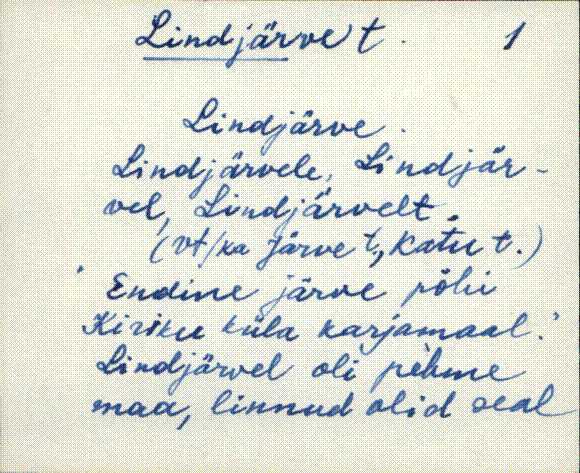 Lindjärve t. 1
Lindjärve.
Lindjärvele, Lindjär-
vel, Lindjärvelt.
(vt/ka Järve t., Katu t.)
'Endine järve põhi
Kiriku küla karjamaal.'
Lindjärvel oli pehme
maa, linnud olid seal